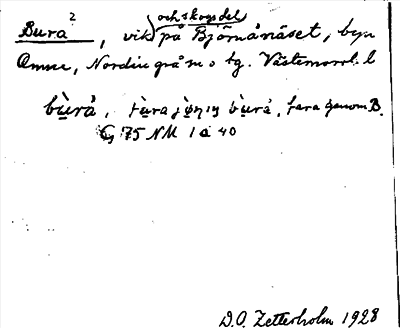 och skogsdel
Bura², vik på Björnånäset, byn
Omne, Nordingrå sn o tg. Västernorrl. l
bùrå, fara jönıŋ bùrå, fara genom B.
G 75 NM 1 a 40
D.O. Zetterholm 1928